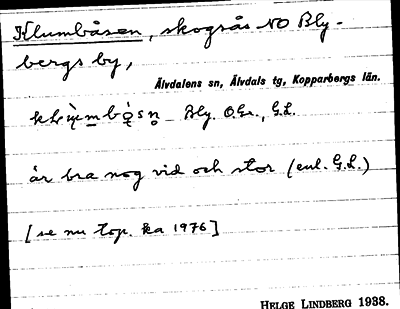 Klumbåsen, skogsås NO Bly-
bergs by,
Älvdalens sn, Älvdals tg, Kopparbergs län.
Bly. O.Er., G.L.
är bra nog vid och stor (enl. G.L.)
[se nu top. ka 1976]
HELGE LINDBERG 1938.